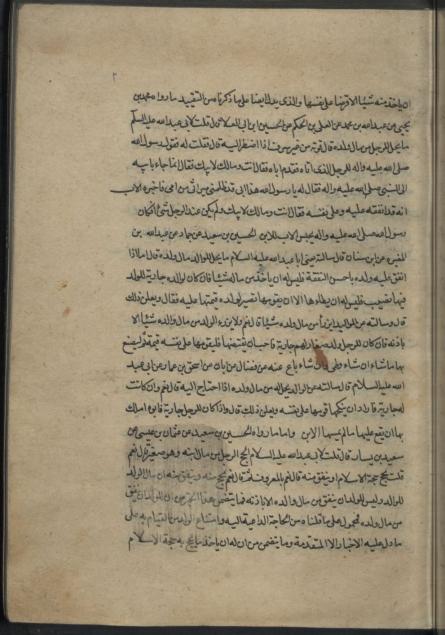 ان ياخذ منه شيئا الا قرضا على نفسها والذى يدل ايضا على ما ذكرناه من التقييد ما رواه محمد بن
يحيى عن عبدالله بن محمد عن على بن الحكم عن الحسين ابن ابى العلا قال قلت لابى عبدالله عليه السلم
ما يحل للرجل من مال ولده قال قوته من غير سرف اذا اضطر اليه قال فقلت له فقول رسول الله
صلى الله عليه واله للرجل الذى اتاه فقدم اباه فقال انت ومالك لابيك فقال انما جاء بابيه
الى النبى صلى الله عليه واله فقال له يا رسول الله هذا ابى قد ظلمنى ميراثى من امى فاخبره الاب
انه قد انفقه عليه وعلى نفسه فقال انت ومالك لابيك ولم يكن عند الرجل شئ افكان
رسول الله صلى الله عليه واله يحبس الاب للابن الحسين بن سعيد عن حماد عن عبدالله بن
المغيره عن ابن سنان قال سالته يعنى ابا عبدالله عليه السلام ما يحل للوالد من مال ولده قال اما اذا
انفق عليه ولده باحسن النفقة فليس له ان ياخذ من ماله شيئا فان كان لوالده جارية للولد
فيها نصيب فليس له ان يطاها الا ان يقومها تصير لولده قيمتها عليه فقال ويعلن ذلك
قال وسالته عن الوالد ايرزا من مال ولده شيئا قال نعم ولا يرزء الولد من مال والده شيئا الا
باذنه فان كان للرجل ولد صغار لهم جارية فاحب ان يقتضيها فليقومها على نفسه قيمة ثم ليصنع
بها ما شاء ان شاء وطى وان شاء باع عنه عن فضال عن ابان عن اسحق بن عمار عن ابى عبد
الله عليه السلام قال سالته عن الوالد يحل له من مال ولده اذا احتاج اليه قال نعم وان كانت
له جارية فاراد ان ينكحها قومها على نفسه ويعلن ذلك قال واذا كان للرجل جارية فابوه املك
بها ان يقع عليها ما لم يمسها الابن واما ما رواه الحسين بن سعيد عن عثمان بن عيسى عن
سعيد بن يسار قال قلت لابى عبدالله عليه السلام ايحج الرجل من مال ابنه وهو صغير قال نعم
قلت يحج حجة الاسلام وينفق منه قال نعم بالمعروف ثم قال نعم يحج منه وينفق منه ان مال الولد
للوالد وليس للولد ان ينفق من مال والده الا باذنه فما يتضمن هذا الخبر من ان للوالد ان ينفق
من مال ولده فمحمول على ما قلناه من الحاجة الداعية اليه وامتناع الولد من القيام به على
ما دل عليه الاخبار المتقدمة وما يتضمن من ان له ان ياخذ ما يحج به حجة الاسلام